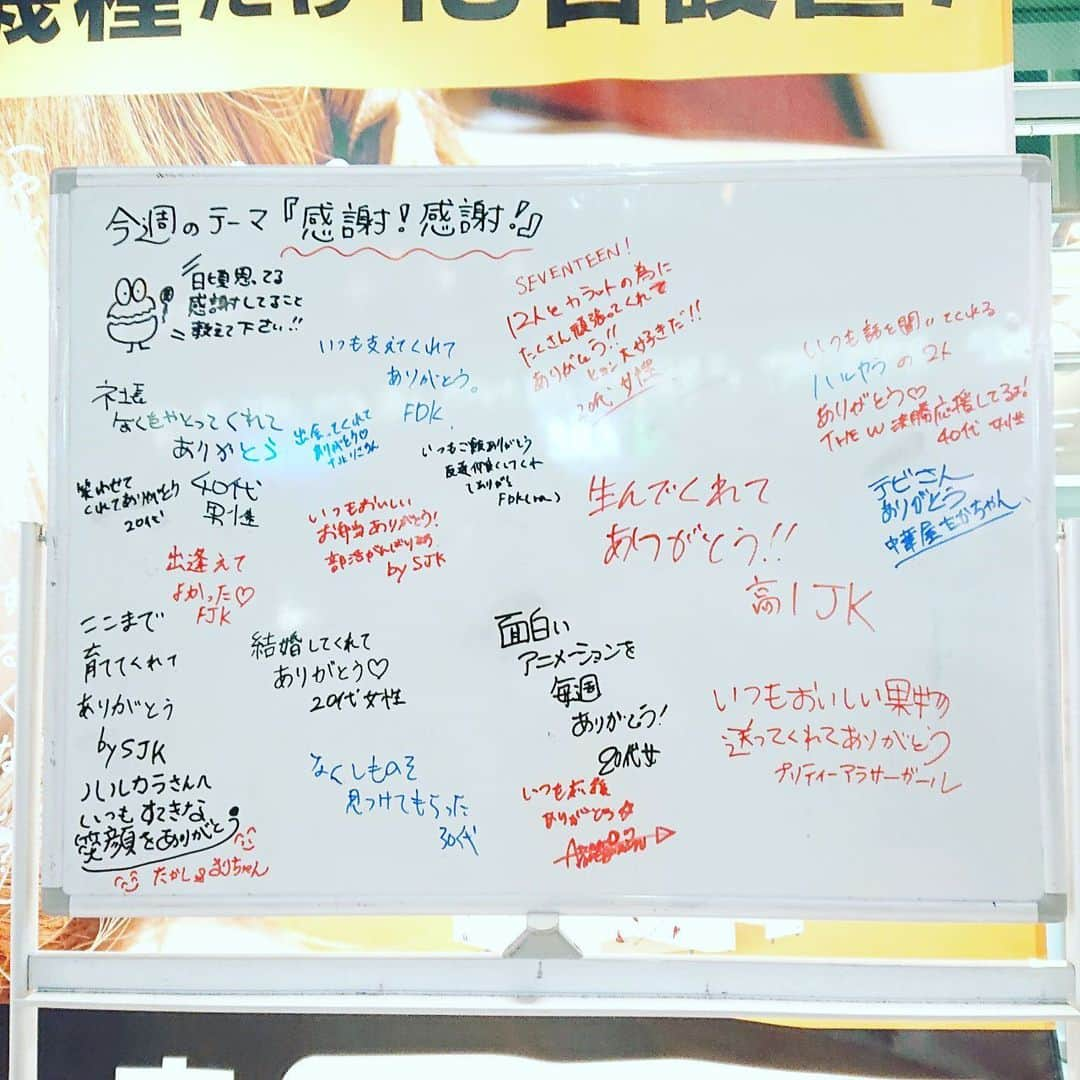 機種だけ
今週のテーマ『感謝!感謝!』
日頃思ってる
感謝してること
教えて下さい!!
SEVENTEEN!
12人とカラットの為に
たくさん頑張ってくれて
ありがとう!!
大好きだ!!
20代 女性
いつも話を聞いてくれる
ハルカラの2人
ありがとう♡
THE W 決勝応援してるよ!
40代 女性
いつも支えてくれて
ありがとう。
FDK
社長
やとってくれて
ありがとう
40代
男性
出会ってくれて
ありがとう♡
いつもご飯ありがとう
FDK
笑わせて
くれてありがとう
20代
いつもおいしい
お弁当ありがとう!
部活がんばります
by SJK
生んでくれて
ありがとう!!
高1JK
デビさん
ありがとう
中華屋たかちゃん
出逢えて
よかった♡
FJK
ここまで
育ててくれて
ありがとう
by SJK
結婚してくれて
ありがとう♡
20代 女性
面白い
アニメーションを
毎週
ありがとう!
20代女
いつもおいしい果物
送ってくれてありがとう
プリティーアラサーガール
ハルカラさんへ
いつもすてきな
笑顔をありがとう
たかし まりちゃん
なくしものを
見つけてもらった
30代
いつも応援
ありがとう☆